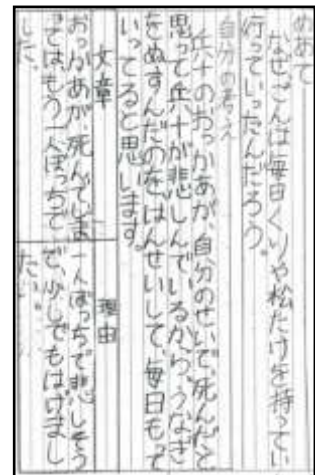 めあて
なぜ、ごんは毎日くりや松たけを持ってい
行っていったんだろう。
自分の考え
兵十のおっかあが、自分のせいで、死んだと
思って兵十が悲しんでいるから、うなぎ
をぬすんだのを、はんせいして、毎日もって
いってると思います。
文章
おっかあが、死んでしま
っては、もう一人ぼっちで
した。
理由
一人ぼっちで悲しそう
で、少しでもはげまし
たい